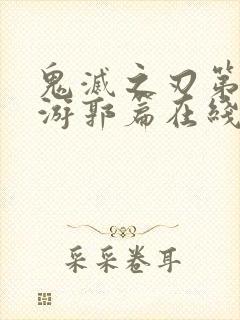 鬼滅之刃第
游郭篇在綫
采采卷耳